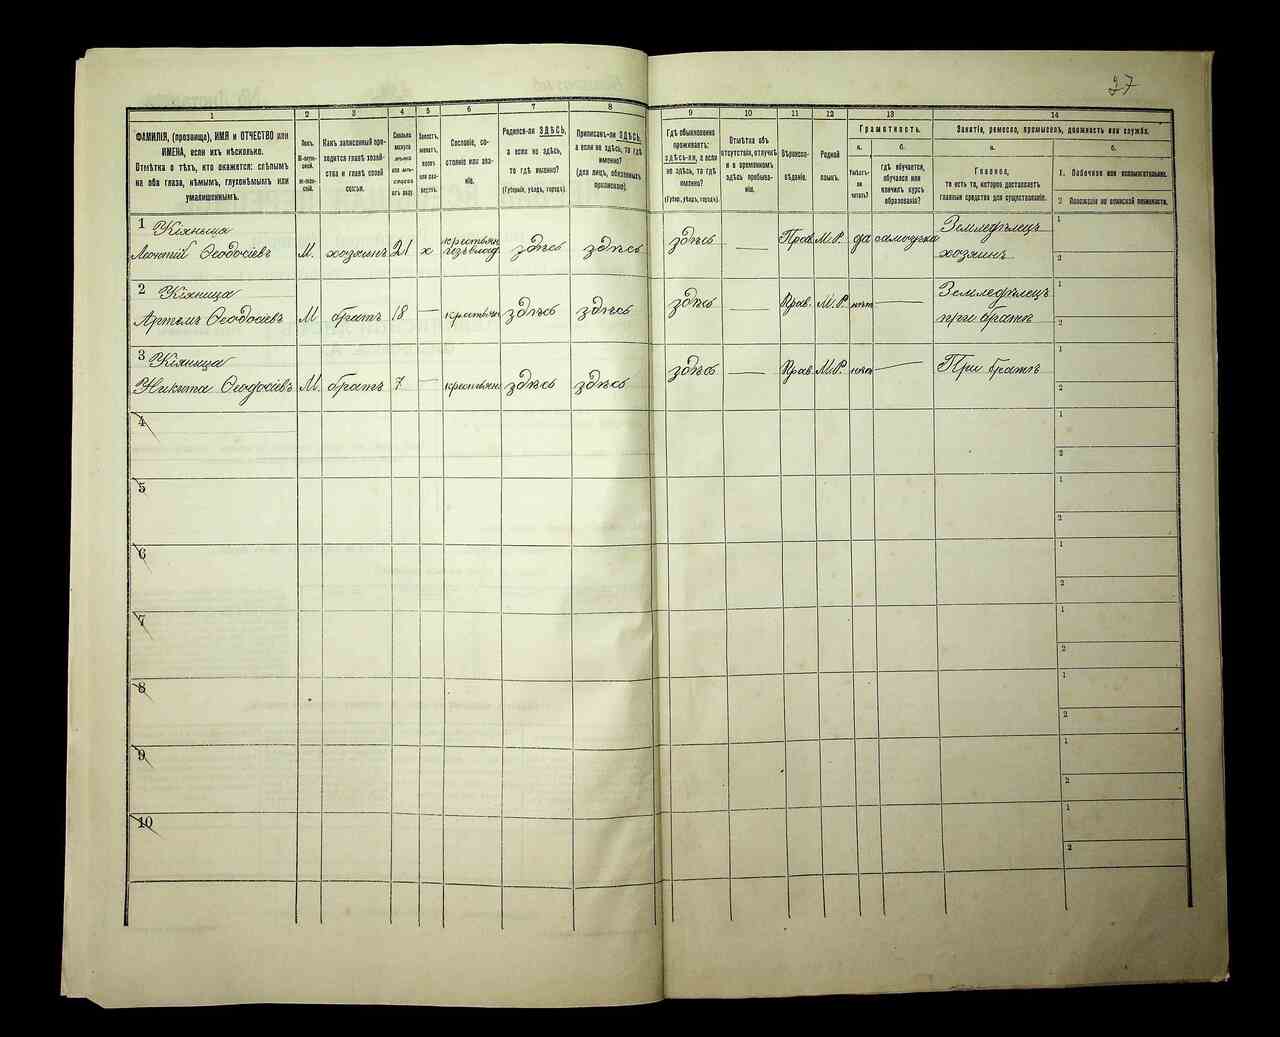 27
1
2
3
4
5
6
7
8
9
10
11
12
13
14
ФАМИЛІЯ, (прозвища), ИМЯ и ОТЧЕСТВО или
ИМЕНА, если ихъ нѣсколько.
Отмѣтка о тѣхъ, кто окажется: слѣпымъ
на оба глаза, нѣмымъ, глухонѣмымъ или
умалишеннымъ.
Полъ.
Какъ записанный при-
ходится главѣ хозяй-
ства и главѣ своей
семьи.
Сколько
минуло
лѣтъ
Сословіе, со-
стояніе или зва-
ніе.
Родился-ли ЗДѢСЬ,
а если не здѣсь,
то гдѣ именно?
(Губернія, уѣздъ, городъ).
Приписанъ-ли ЗДѢСЬ,
а если не здѣсь, то гдѣ
именно?
(для лицъ, обязанныхъ
припискою).
Гдѣ обыкновенно
проживаетъ:
здѣсь-ли, а если
не здѣсь, то гдѣ
именно?
(Губер., уѣздъ, городъ).
Отмѣтка объ
отсутствіи, отлучкѣ
и о временномъ
здѣсь пребыва-
ніи.
Вѣроиспо-
вѣданіе.
Родной
языкъ.
Грамотность.
а.
Умѣетъ-
ли
читать?
б.
гдѣ обучается,
обучался или
кончилъ курсъ
образованія?
Занятіе, ремесло, промыселъ, должность или служба.
а.
Главное,
то есть то, которое доставляетъ
главныя средства для существованія.
б.
1. Побочное или вспомогательное.
2 Положеніе по воинской повинности.
1 Кіяныца
Леонтій Ѳеодосіевъ М. хозяинъ 21 х крестьян здѣсь здѣсь здѣсь — Прав. М.Р. да самоучка Земледѣлецъ
хозяинъ
1
2
2 Кіяница
Артемъ Ѳеодосіевъ М братъ 18 — крестьян здѣсь здѣсь здѣсь — Прав. М.Р. нѣтъ — Земледѣлецъ
при братѣ
1
2
3 Кіяныца
Никита Ѳеодосіевъ М. братъ 7 — крестьян здѣсь здѣсь здѣсь — Прав. М.Р. нѣтъ — При братѣ
1
2
4
1
2
5
1
2
6
1
2
7
1
2
8
1
2
9
1
2
10
1
2